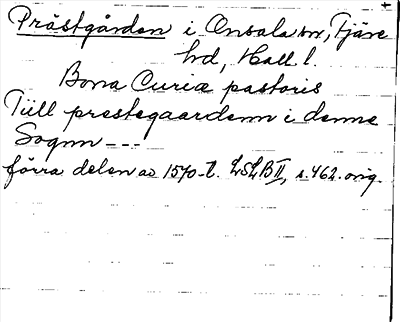 Prästgården i Onsala sn, Fjäre
hd, Hall l.
Bona Curiæ pastoris
Till prestegaardenn i denne
Sognn ---
förra delen av 1570-t. LSLB II, s. 462. orig.